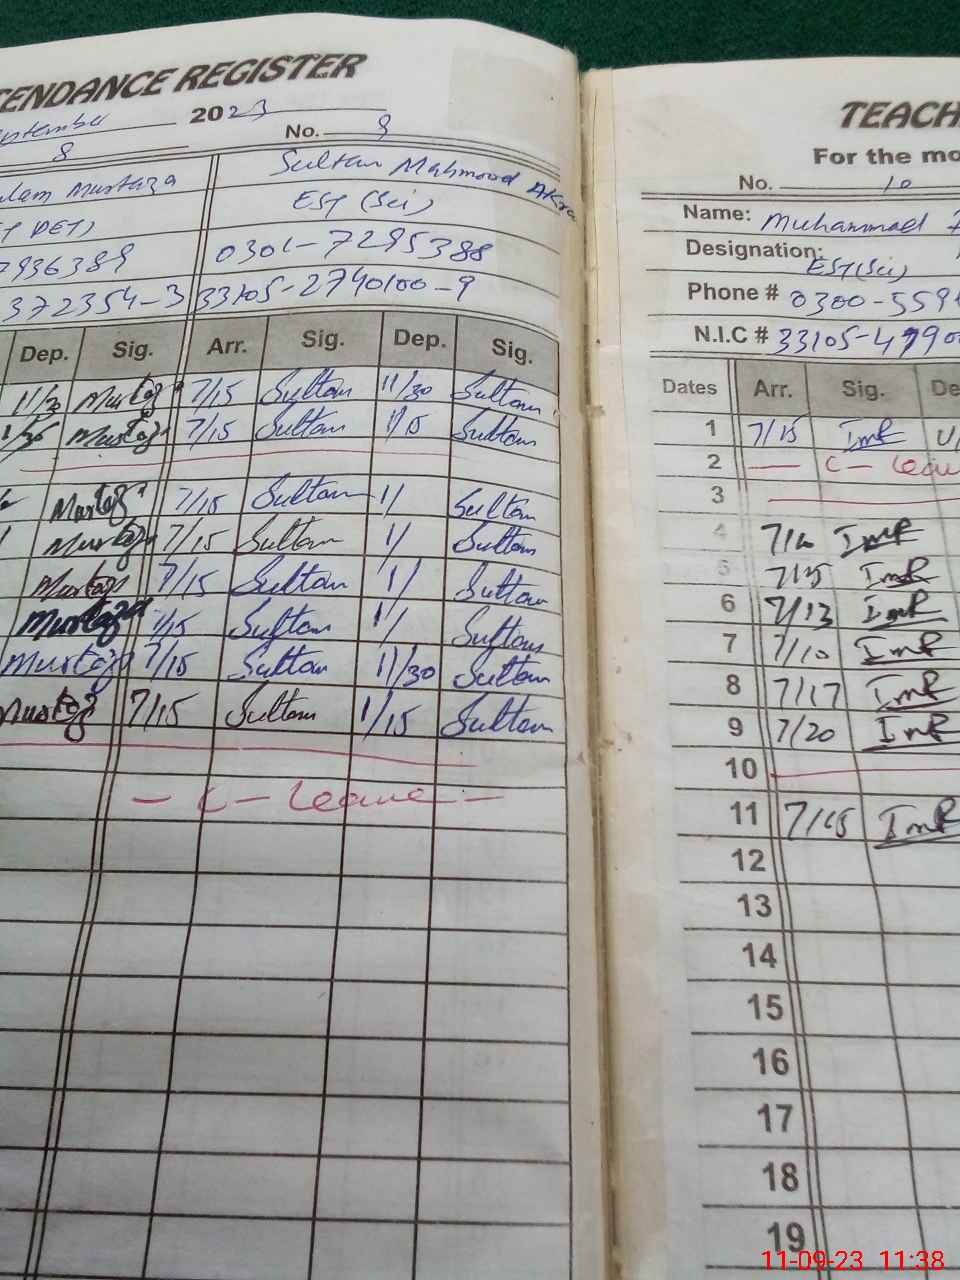 TENDANCE REGISTER
2023
8 No. 9
Mustaza Sultan Mahmood
EST (Sci)
7936389 0301-7295388
372354-3 33105-2740100-9
Dep. Sig. Arr. Sig. Dep. Sig.
11/30 Mustaz 7/15 Sultan 11/30 Sultan
1/30 Mustaz 7/15 Sultan 1/15 Sultan
Mustaz 7/15 Sultan 1/ Sultan
Mustaz 7/15 Sultan 1/ Sultan
Mustaz 7/15 Sultan 1/ Sultan
Mustaza 7/15 Sultan 1/ Sultan
Mustaz 7/15 Sultan 11/30 Sultan
Mustaz 7/15 Sultan 1/15 Sultan
- C - Leave -
TEACH
For the mo
No. 10
Name: Muhammad
Designation: EST(Sci)
Phone # 0300-559
N.I.C # 33105-4790
Dates Arr. Sig. De
1 7/15 ImR
2 - C - Leav
3
4 ImR
5 7/15 ImR
6 7/13 ImR
7 7/10 ImR
8 7/17 ImR
9 7/20 ImR
10
11 ImR
12
13
14
15
16
17
18
19
11-09-23 11:38